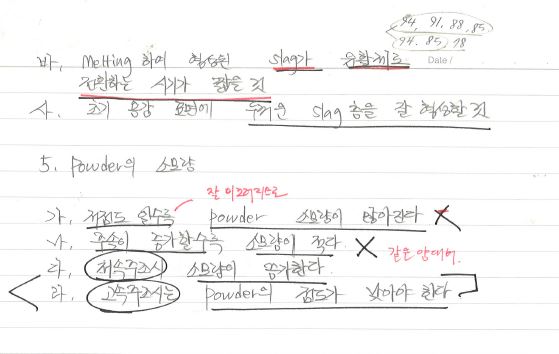 94, 91, 88, 85
94. 85, 78
Date /
바, Melting 하여 형성된 slag가 윤활제로
전환하는 시기가 짧을 것
사, 초기 용강 표면에 두꺼운 slag 층을 잘 형성할 것
5. Powder의 소모량
잘 미끄러지므로
가, 저점도 일수록 powder 소모량이 많아진다 X
나, 주속이 증가할수록 소모량이 적다. X 같은 양대비.
다, 저속주조시 소모량이 증가한다.
라, 고속주조시는 powder의 점도가 낮아야 한다